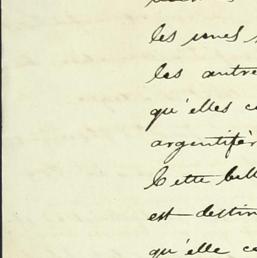 les unes
les autre
qu'elles c
argentifèr
Cette bell
est destin
qu'elle c